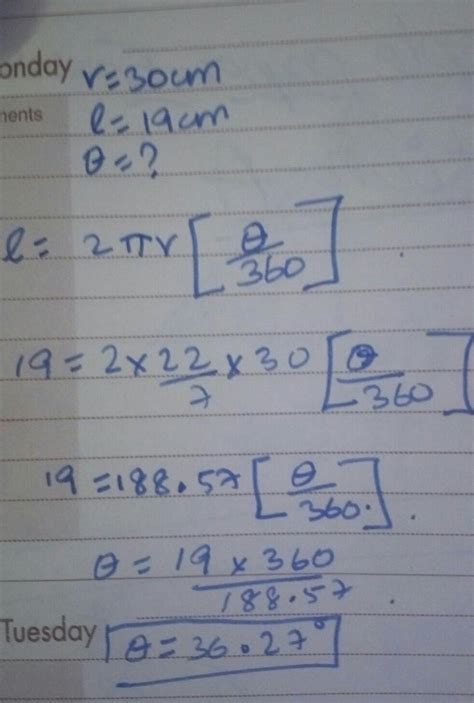 onday r=30cm
ments l=19cm
θ=?
l= 2πr[θ/360]
19=2×22/7×30[θ/360]
19=188.57[θ/360.].
θ= 19×360/188.57.
Tuesday θ=36.27°